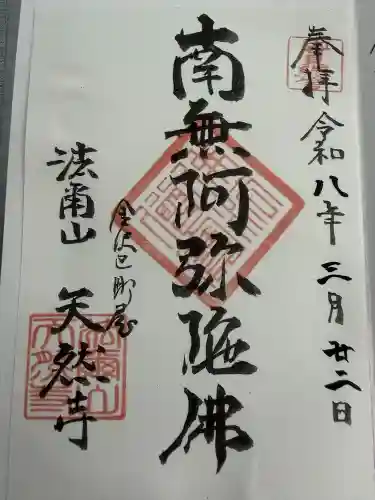 奉拝
令和八年三月廿二日
南無阿弥陀佛
金沢巳彫屋
法南山
天然寺